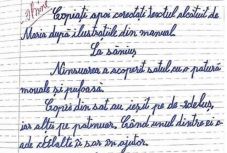 Copiați apoi corectați textul alcătuit de
Maria după ilustrațiile din manual.
La săniuș
Ninsoarea a acoperit satul cu o pătură
moale și pufoasă.
Copiii din sat au ieșit pe de-rdeluș,
iar alții pe patinuar. Când unul dintre ei
ade ceilalți îi sar în ajutor.